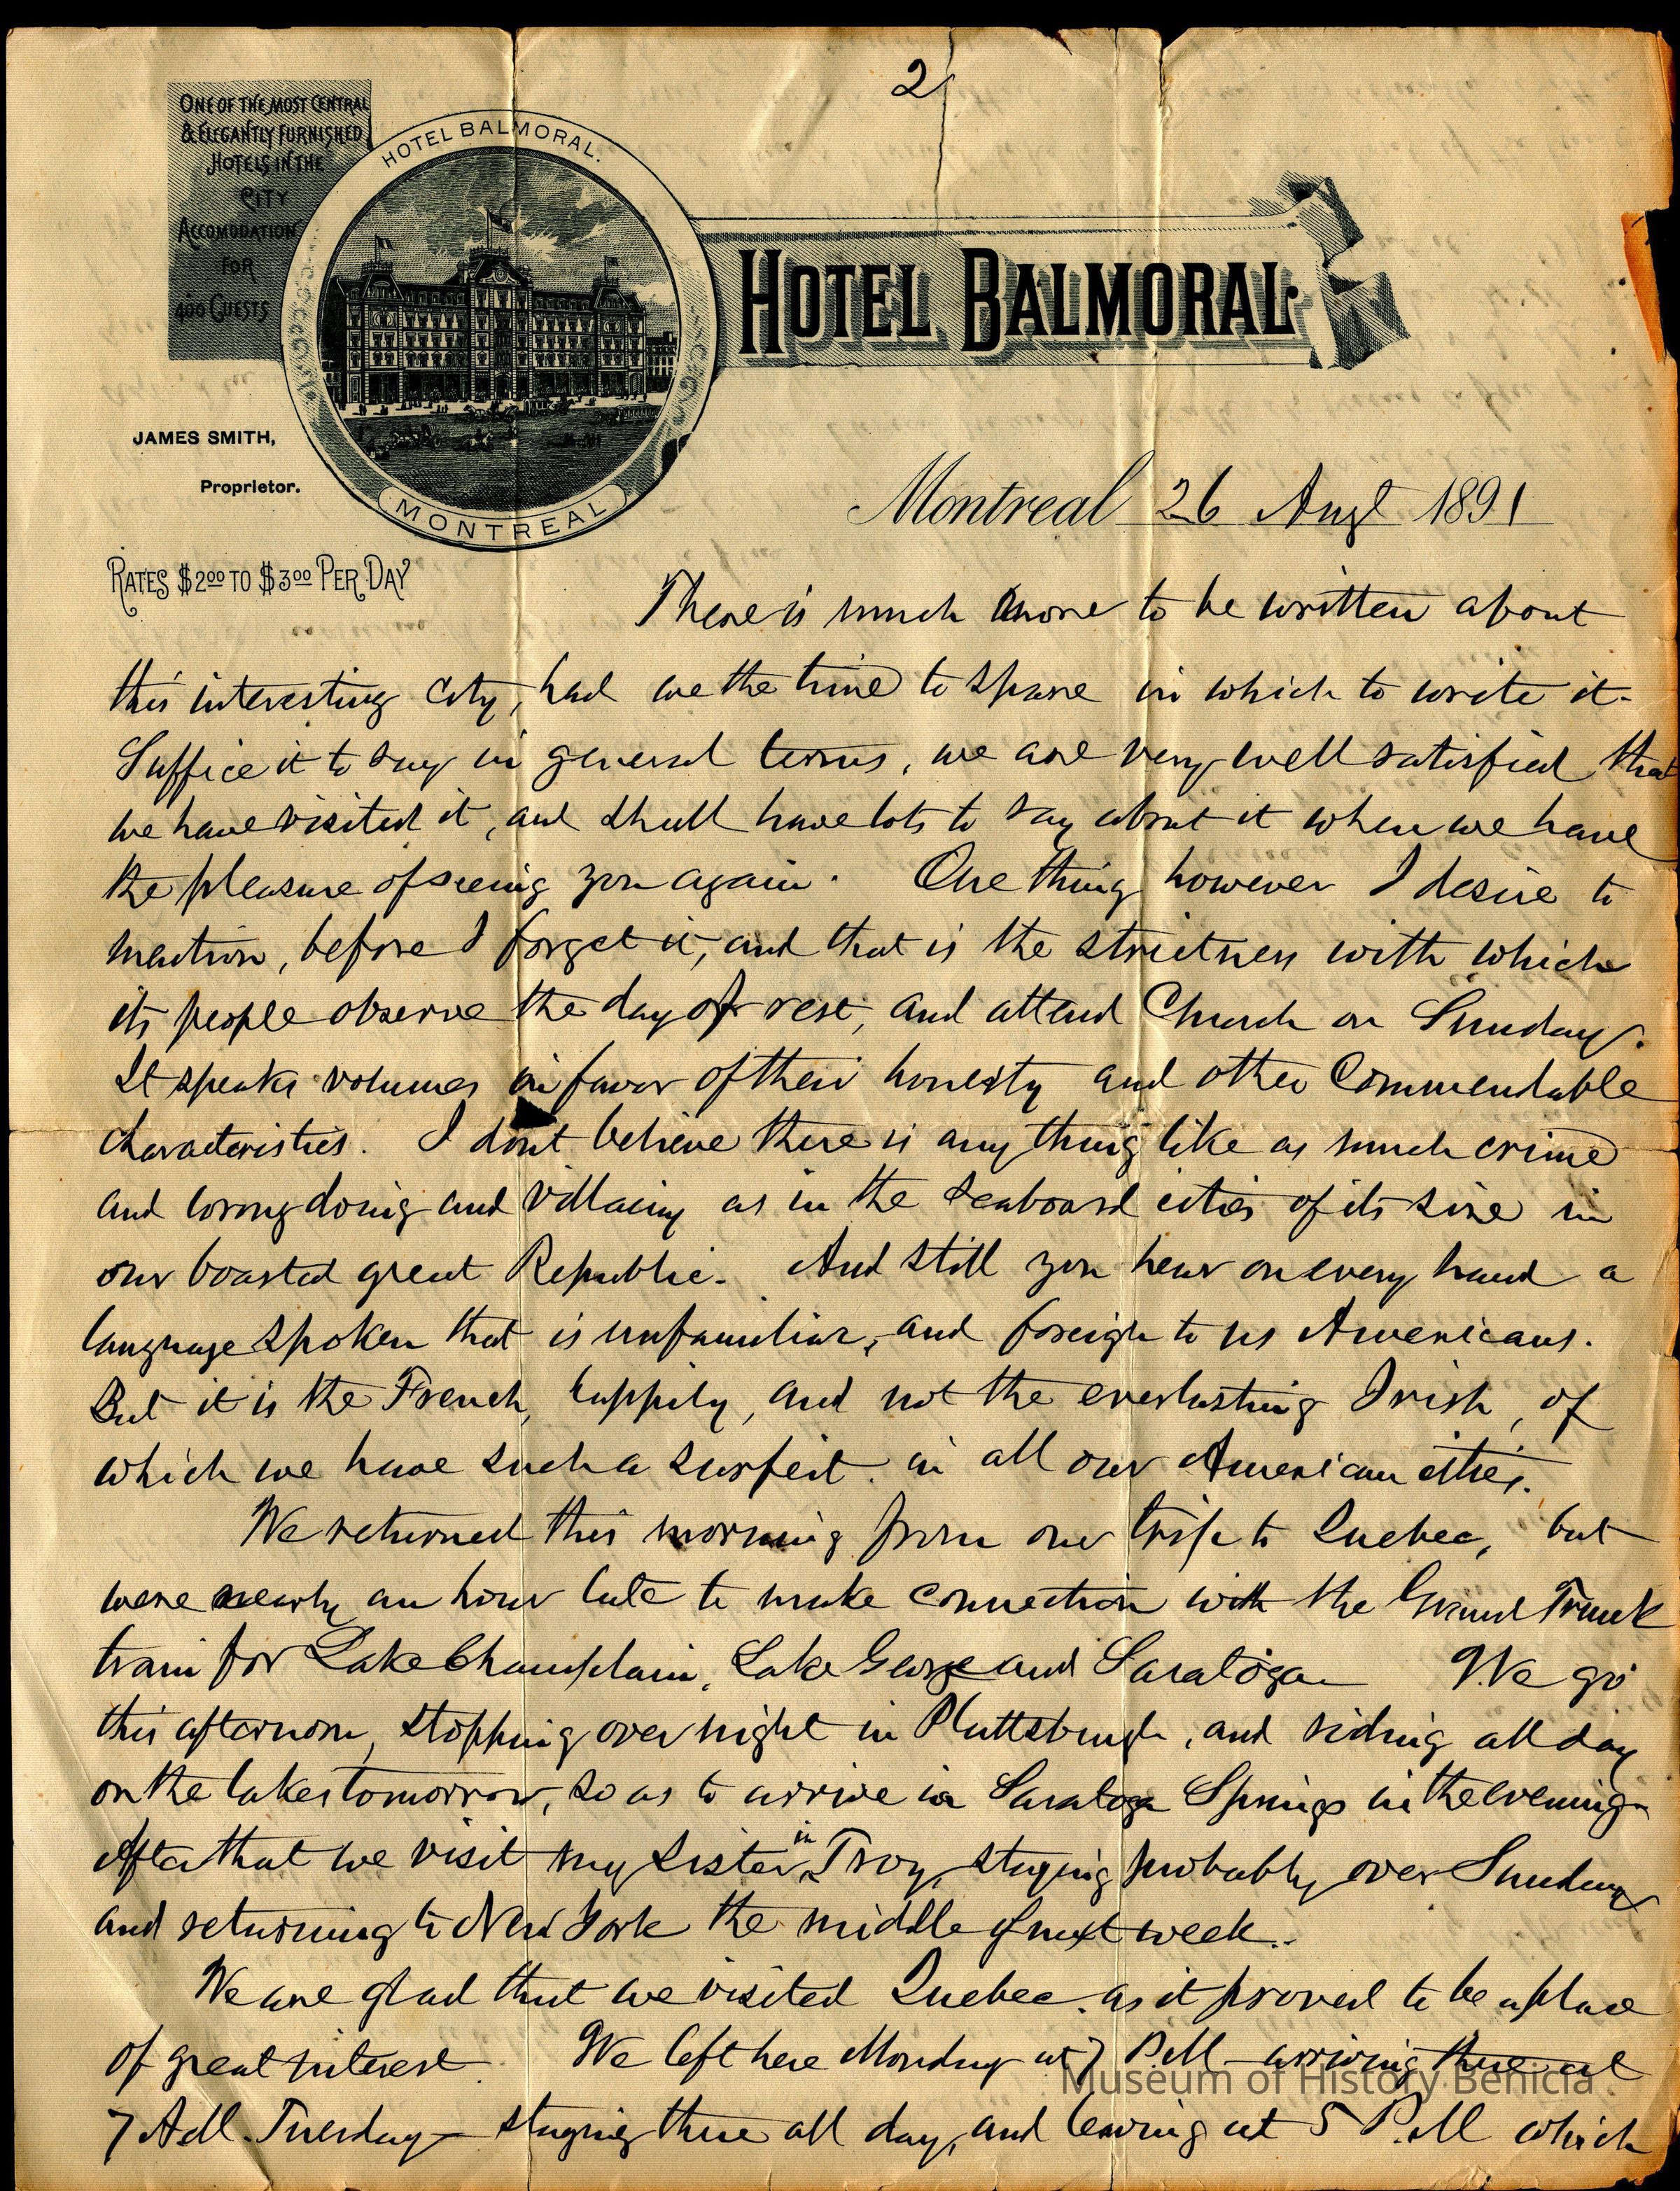 2
ONE OF THE MOST CENTRAL
& ELEGANTLY FURNISHED
HOTELS IN THE
CITY
ACCOMODATION
FOR
400 GUESTS
HOTEL BALMORAL.
MONTREAL
HOTEL BALMORAL.
JAMES SMITH,
Proprietor.
RATES $2.00 TO $3.00 PER DAY
Montreal 26 Augt 1891
There is much more to be written about
this interesting city, had we the time to spare in which to write it.
Suffice it to say in general terms, we are very well satisfied that
we have visited it, and shall have lots to say about it when we have
the pleasure of seeing you again. One thing however I desire to
mention, before I forget it, and that is the strictness with which
its people observe the day of rest, and attend Church on Sunday.
It speaks volumes in favor of their honesty and other commendable
characteristics. I dont believe there is any thing like as much crime
and wrong doing and villainy as in the seaboard cities of its size in
our boasted great Republic. And still you hear on every hand a
language spoken that is unfamiliar, and foreign to us Americans.
But it is the French, happily, and not the everlasting Irish, of
which we have such a surfeit in all our American cities.
We returned this morning from our trip to Quebec, but
were nearly an hour late to make connection with the Grand Trunk
train for Lake Champlain, Lake George and Saratoga We go
this afternoon, stopping over night in Plattsburgh, and riding all day
on the lakes tomorrow, so as to arrive in Saratoga Springs in the evening.
After that we visit my sister in Troy, staying probably over Sunday
and returning to New York the middle of next week.
We are glad that we visited Quebec, as it proved to be a place
of great interest. We left here Monday at 7 P.M. arriving there at
7 A.M. Tuesday – staying there all day, and leaving at 5 P.M which
Museum of History Benicia